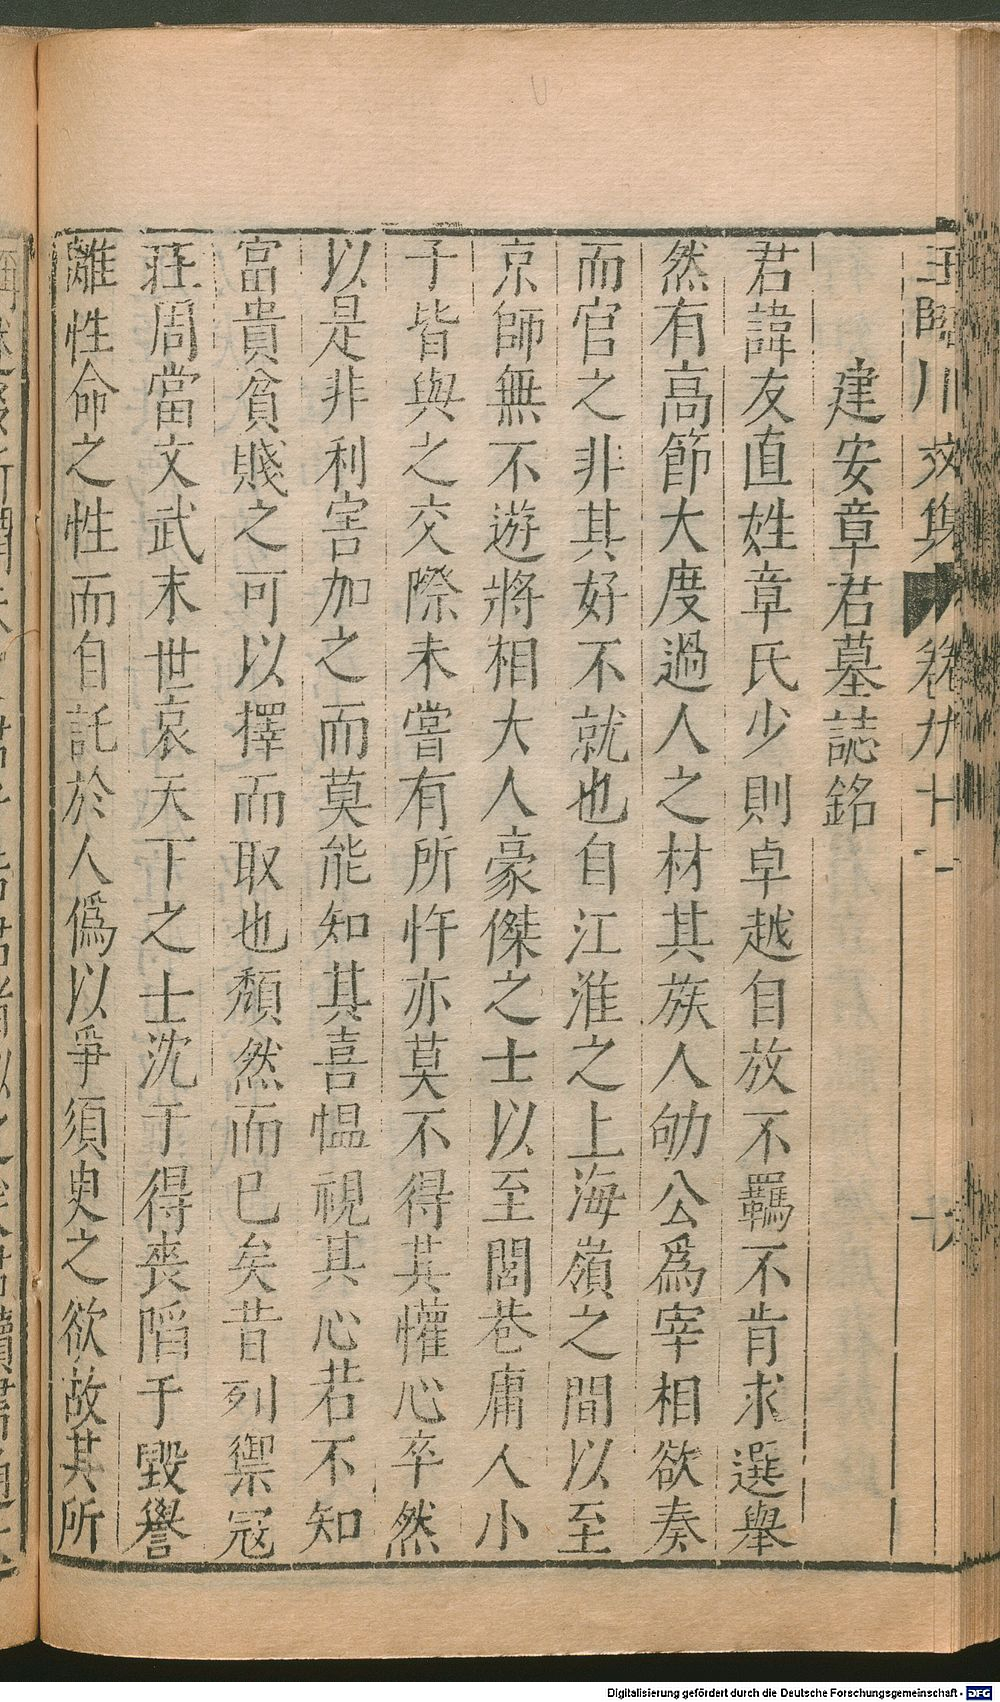 王臨川文集 卷九十一 十八
建安章君墓誌銘
君諱友直姓章氏少則卓越自放不羈不肯求選舉
然有高節大度過人之材其族人郇公爲宰相欲奏
而官之非其好不就也自江淮之上海嶺之間以至
京師無不遊將相大人豪傑之士以至閭巷庸人小
子皆與之交際未嘗有所忤亦莫不得其懽心卒然
以是非利害加之而莫能知其喜慍視其心若不知
富貴貧賤之可以擇而取也頹然而已矣昔列禦寇
莊周當文武末世哀天下之士沈于得喪陷于毀譽
離性命之性而自託於人僞以爭須臾之欲故其所
Digitalisierung gefördert durch die Deutsche Forschungsgemeinschaft - DFG